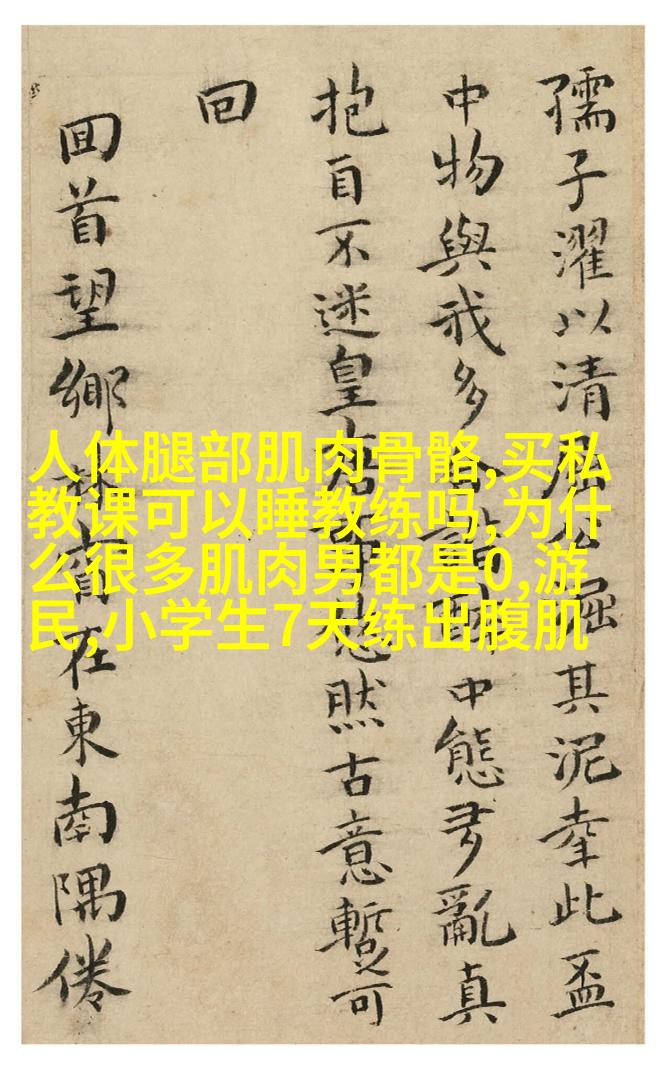 孺子濯以清屈公掘其泥幸此盃
中物與我多合醉中態多亂真
抱自不迷皇唐然古意暫可
回
回首望鄉在東南隅倦
人体腿部肌肉骨骼,买私
教课可以睡教练吗,为什
么很多肌肉男都是0,游
民,小学生7天练出腹肌